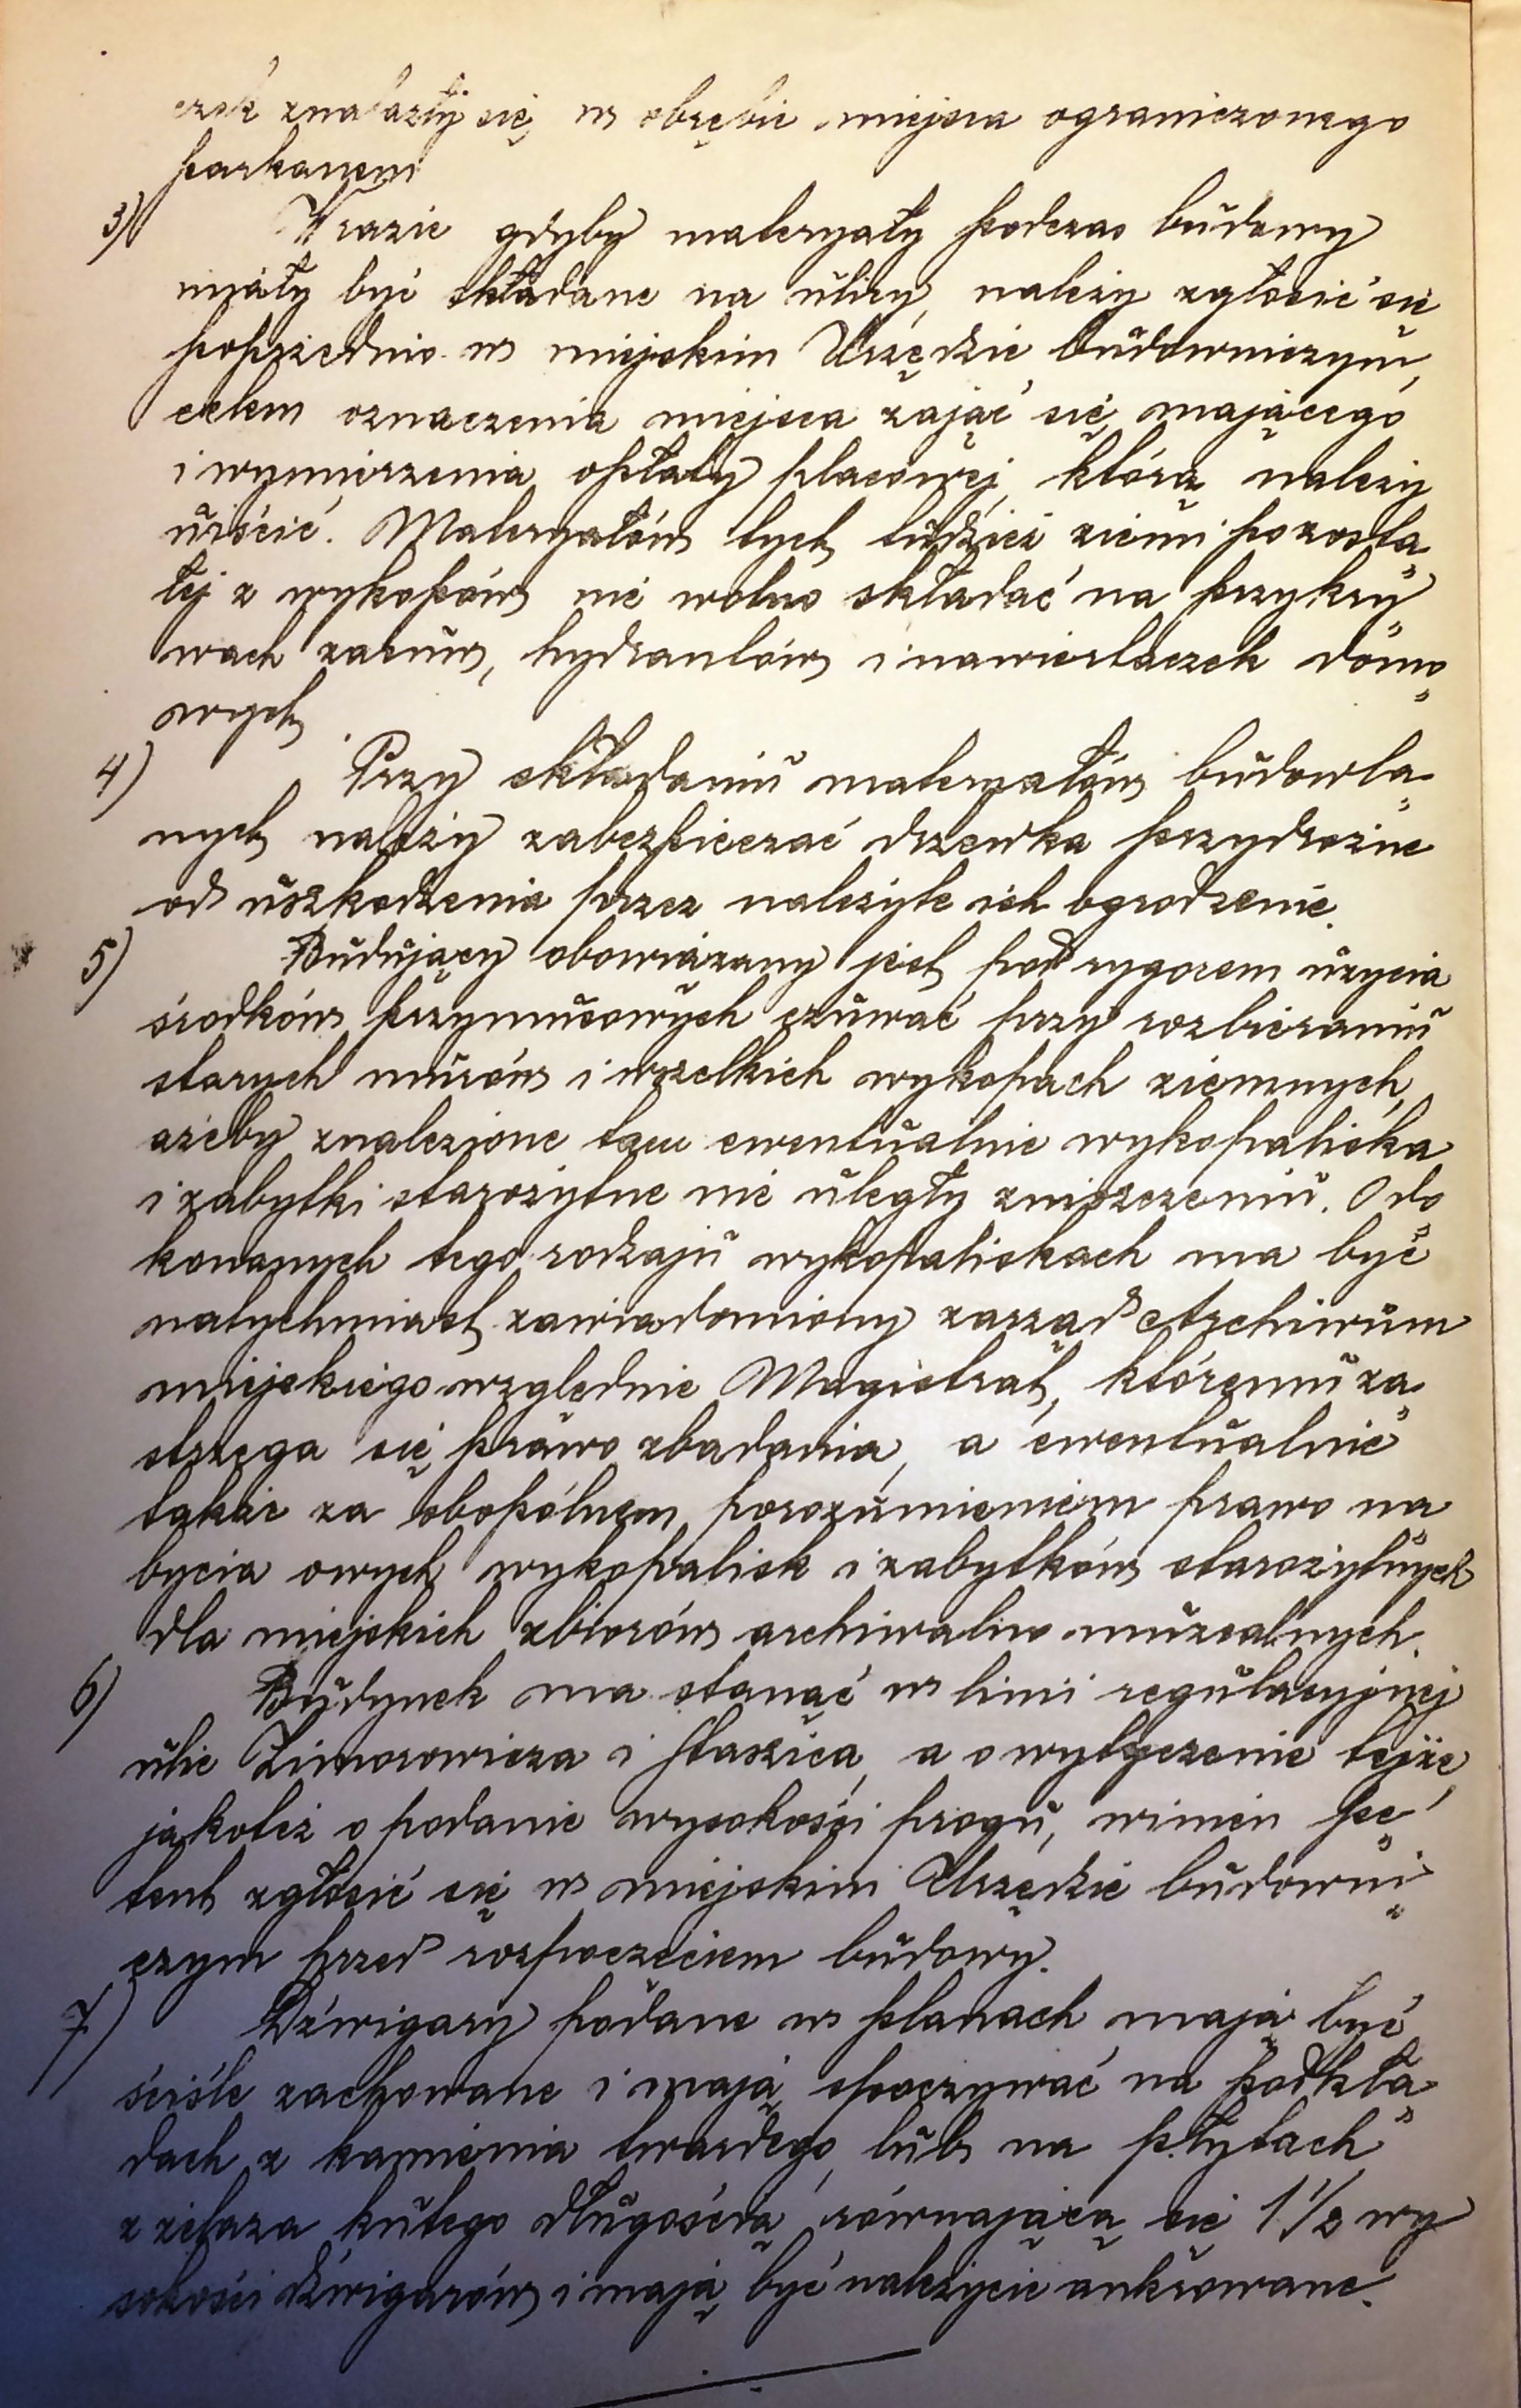 czek znalazły się w obrębie miejsca ograniczonego
parkanem
3) W razie gdyby materyały podczas budowy
miały być składane na ulicy, należy zgłosić się
poprzednio w miejskim Urzędzie budowniczym,
celem oznaczenia miejsca zająć się mającego
i wymierzenia opłaty placowej, którą należy
uiścić. Materyałów tych tudzież ziemi pozosta„
łej z wykopów nie wolno składać na przykry„
wach zasuw, hydrantów i nawiertaczek domo„
wych.
4) Przy składaniu materyałów budowla„
nych należy zabezpieczać drzewka przydrożne
od uszkodzenia przez należyte ich ogrodzenie.
5) Budujący obowiązany jest pod rygorem użycia
środków przymusowych czuwać przy rozbieraniu
starych murów i wszelkich wykopach ziemnych,
ażeby znalezione tam ewentualnie wykopaliska
i zabytki starożytne nie uległy zniszczeniu. O do„
konanych tego rodzaju wykopaliskach ma być
natychmiast zawiadomiony zarząd Archiwum
miejskiego względnie Magistrat, któremu za„
strzega się prawo zbadania, a ewentualnie
także za obopólnem porozumieniem prawo na„
bycia owych wykopalisk i zabytków starożytnych
dla miejskich zbiorów archiwalno muzealnych.
6) Budynek ma stanąć w linii regulacyjnej
ulic Zimorowicza i Staszica, a o wytyczenie tejże,
jakoteż o podanie wysokości progu, winien pe„
tent zgłosić się w miejskim Urzędzie budowni„
czym przed rozpoczęciem budowy.
7) Dźwigary podane w planach mają być
ściśle zachowane i mają spoczywać na podkła„
dach z kamienia twardego, lub na płytach
z żelaza kutego długością równającą się 1 1/2 wy
sokości dźwigarów i mają być należycie ankrowane.